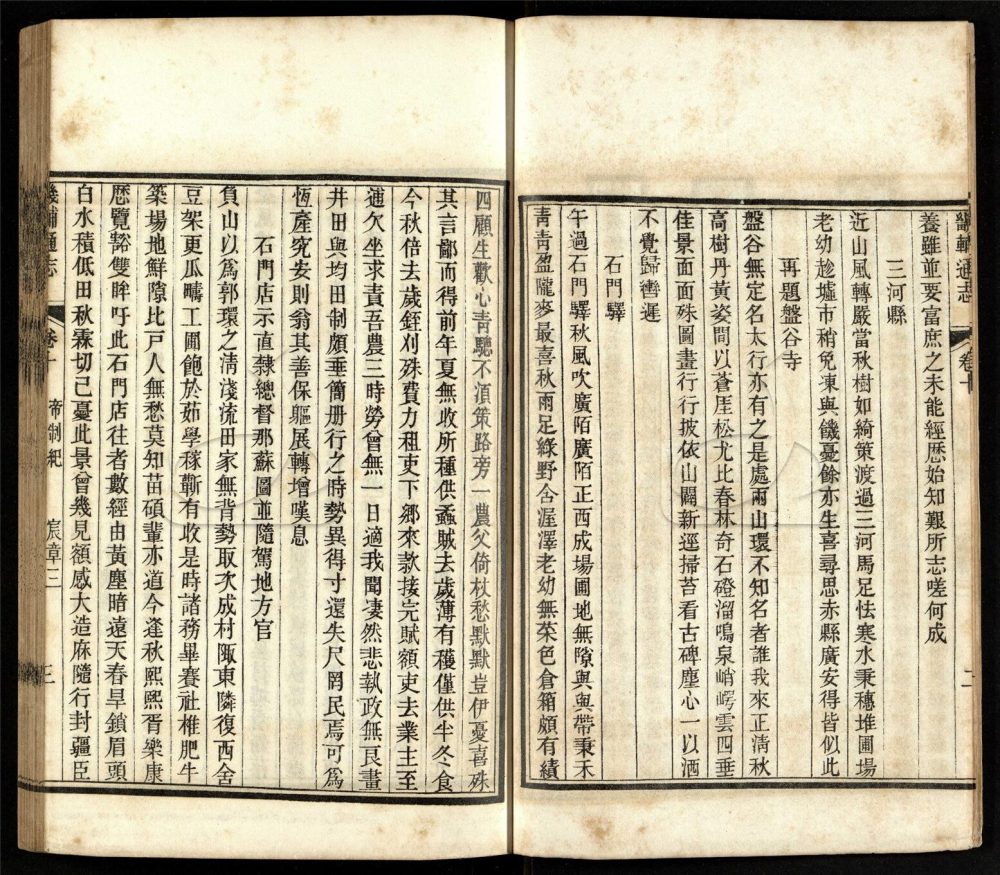 畿輔通志 卷十 二
養雖並要富庶之未能經歷始知艱所志嗟何成
三河縣
近山風轉嚴當秋樹如綺策渡過三河馬足怯寒水秉穗堆圃場
老幼趁墟市稍免凍與饑憂餘亦生喜尋思赤縣廣安得皆似此
再題盤谷寺
盤谷無定名太行亦有之是處兩山環不知名者誰我來正清秋
高樹丹黃姿間以蒼厓松尤比春林奇石磴溜鳴泉峭崿雲四垂
佳景面面殊圖畫行行披依山闢新逕掃苔看古碑塵心一以洒
不覺歸轡遲
石門驛
午過石門驛秋風吹廣陌廣陌正西成場圃地無隙與與帶秉禾
青青盈隴麥最喜秋雨足綠野含渥澤老幼無菜色倉箱頗有績
四顧生歡心青驄不須策路旁一農父倚杖愁默默豈伊憂喜殊
其言鄙而得前年夏無收所種供蟊賊去歲薄有穫僅供半冬食
今秋倍去歲銍刈殊費力租吏下鄉來款接完賦額吏去業主至
逋欠坐求責吾農三時勞曾無一日適我聞凄然悲執政無良畫
井田與均田制頗垂簡册行之時勢異得寸還失尺罔民焉可爲
恆產究安則翁其善保軀展轉增嘆息
石門店示直隸總督那蘇圖並隨駕地方官
負山以爲郭環之淸淺流田家無背勢取次成村陬東隣復西舍
豆架更瓜疇工圃飽於茹學稼斸有收是時諸務畢賽社椎肥牛
築場地鮮隙比戶人無愁莫知苗碩輩亦道今逢秋熙熙胥樂康
歷覽豁雙眸吁此石門店往者數經由黃塵暗遠天春旱鎖眉頭
白水積低田秋霖切己憂此景曾幾見額感大造庥隨行封疆臣
畿輔通志 卷十 帝制紀 宸章三 三